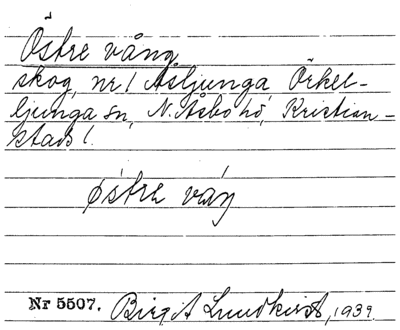 Östre vång
skog, nr 1 Åsljunga, Örkel-
ljunga sn, N. Åsbo hd, Kristian-
stads l.
östre våŋ
Nr 5507. Birgit Lundkvist, 1939